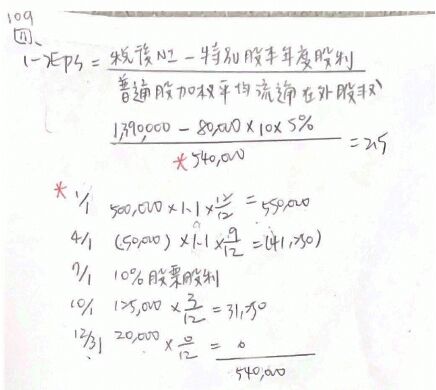 109
四、
(一)EPS = 稅後NI - 特別股本年度股利
普通股加權平均流通在外股數
1,390,000 - 80,000 × 10 × 5%
*540,000
= 2.5
* 1/1 500,000 × 1.1 × 12/12 = 550,000
4/1 (50,000) × 1.1 × 9/12 = (41,250)
7/1 10% 股票股利
10/1 125,000 × 3/12 = 31,250
12/31 20,000 × 0/12 = 0
540,000